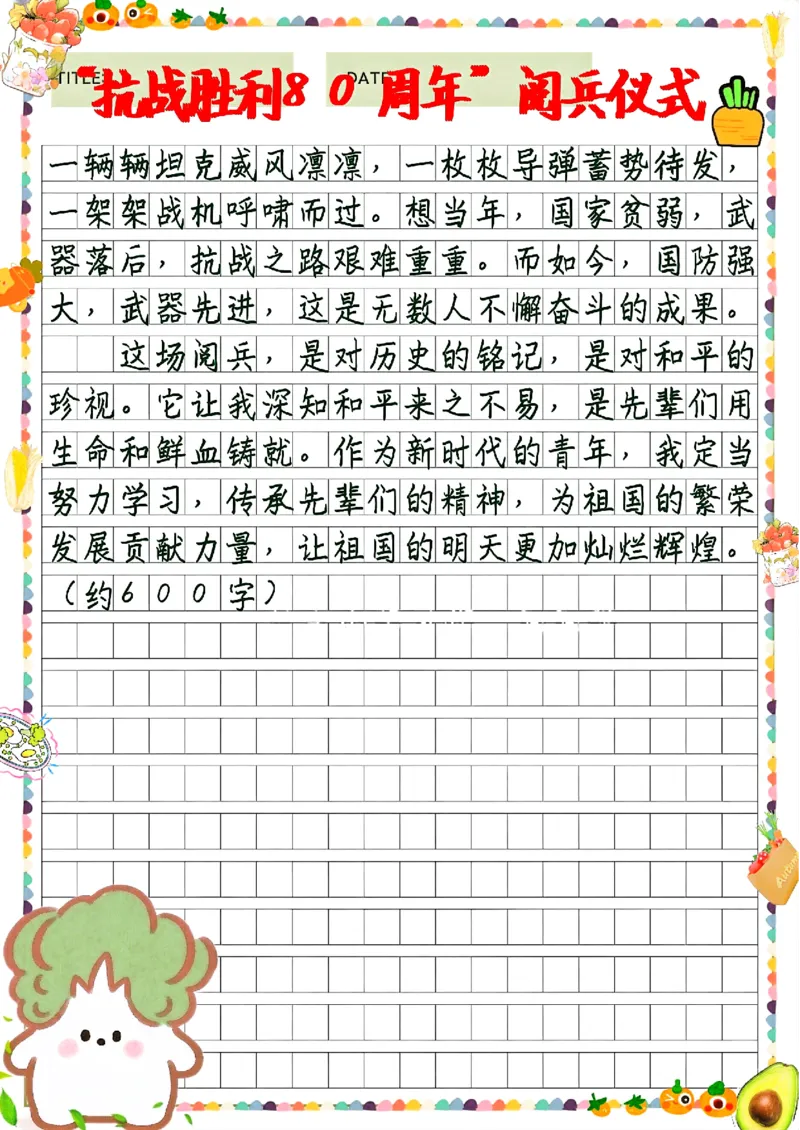 TITLE: DATE
“抗战胜利80周年”阅兵仪式
一辆辆坦克威风凛凛，一枚枚导弹蓄势待发，
一架架战机呼啸而过。想当年，国家贫弱，武
器落后，抗战之路艰难重重。而如今，国防强
大，武器先进，这是无数人不懈奋斗的成果。
这场阅兵，是对历史的铭记，是对和平的
珍视。它让我深知和平来之不易，是先辈们用
生命和鲜血铸就。作为新时代的青年，我定当
努力学习，传承先辈们的精神，为祖国的繁荣
发展贡献力量，让祖国的明天更加灿烂辉煌。
（约600字）